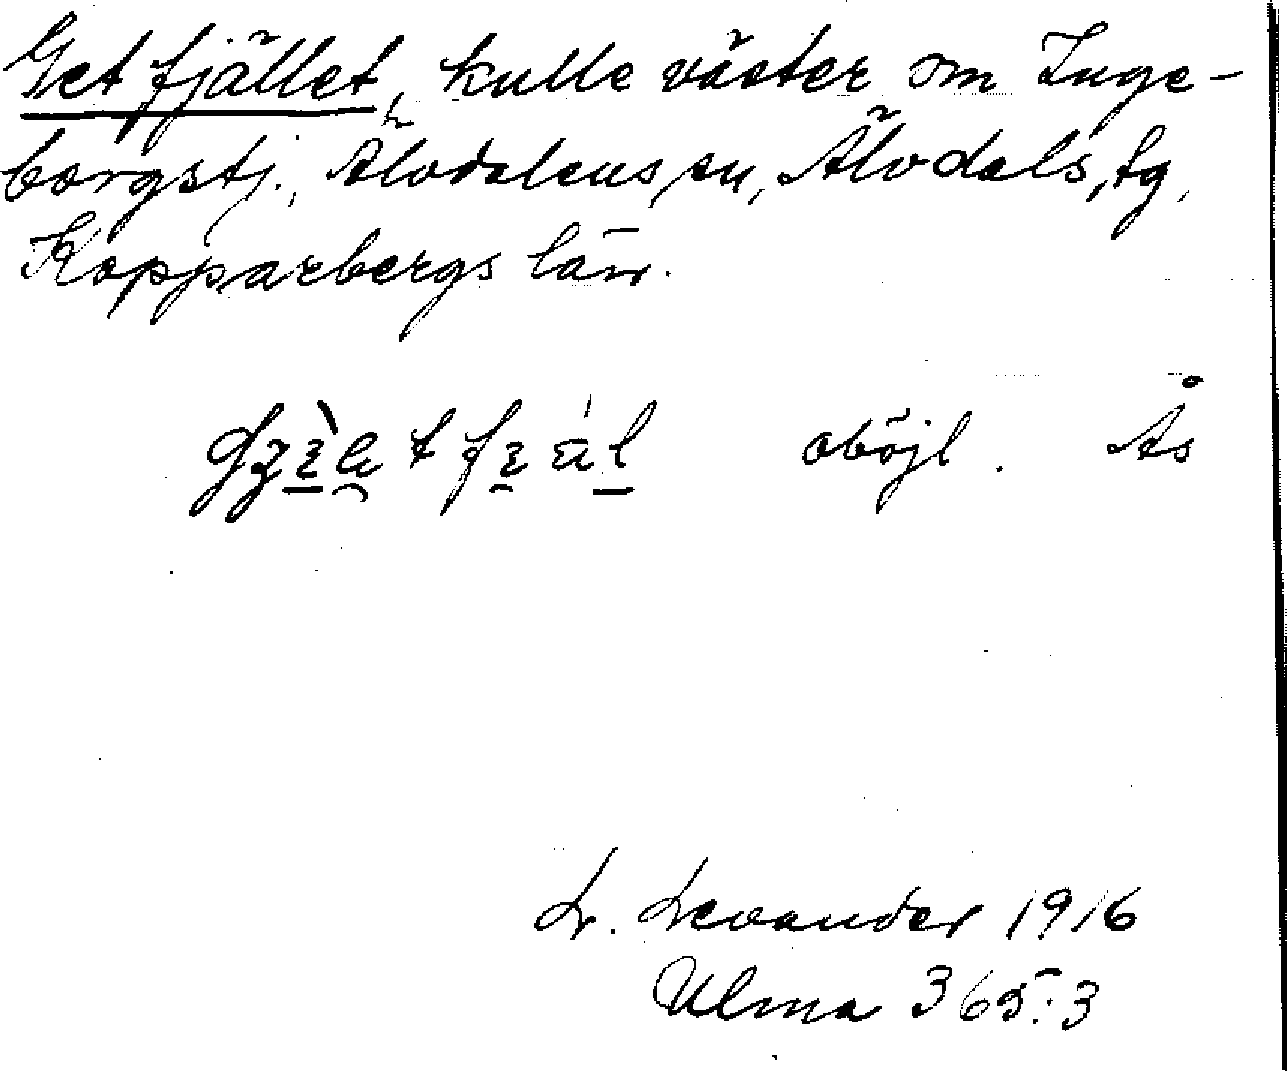 Getfjället, kulle väster om Inge-
borgstj., Älvdalens sn, Älvdals tg,
Kopparbergs län.
oböjl. Ås
L. Levander 1916
Ulma 365:3